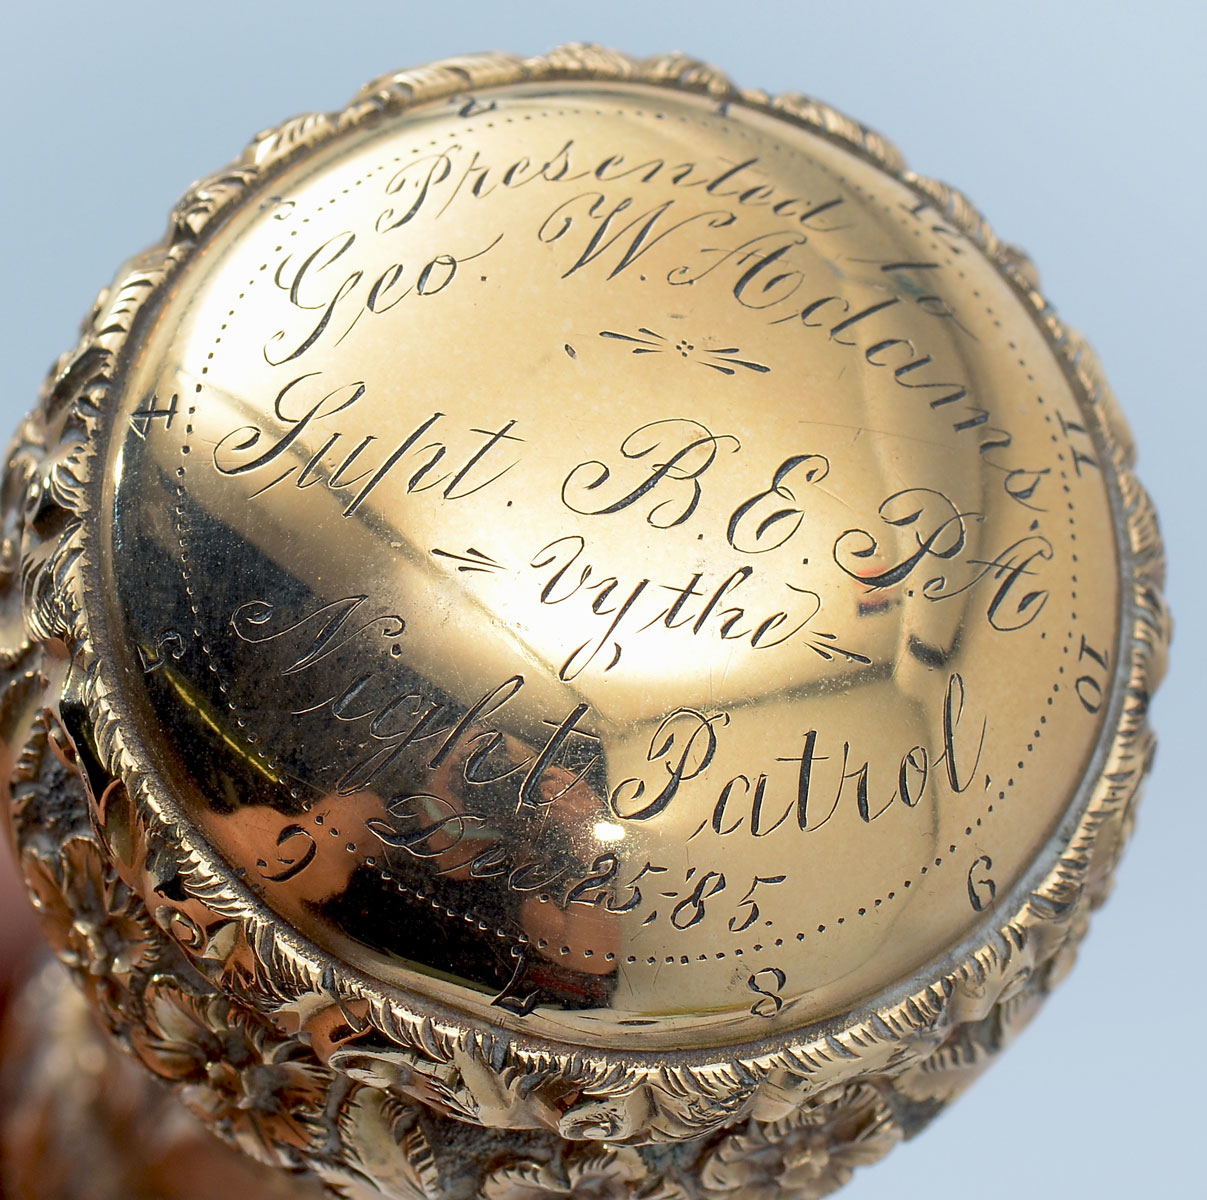 Presented to
Geo. W. Adams,
Supt. B. E. P. A.
by the
Night Patrol.
Dec. 25,-'85.
1
2
3
4
5
6
7
8
9
10
11
12